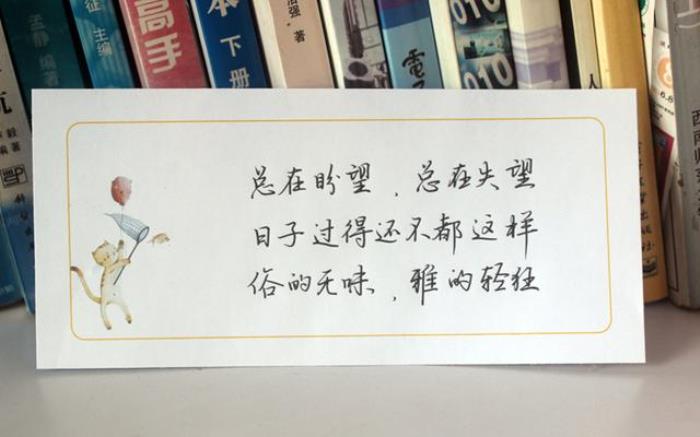 孟静 编著
征 主编
高手
本 下册
浩强 著
電子
010
010
总在盼望，总在失望
日子过得还不都这样
俗的无味，雅的轻狂